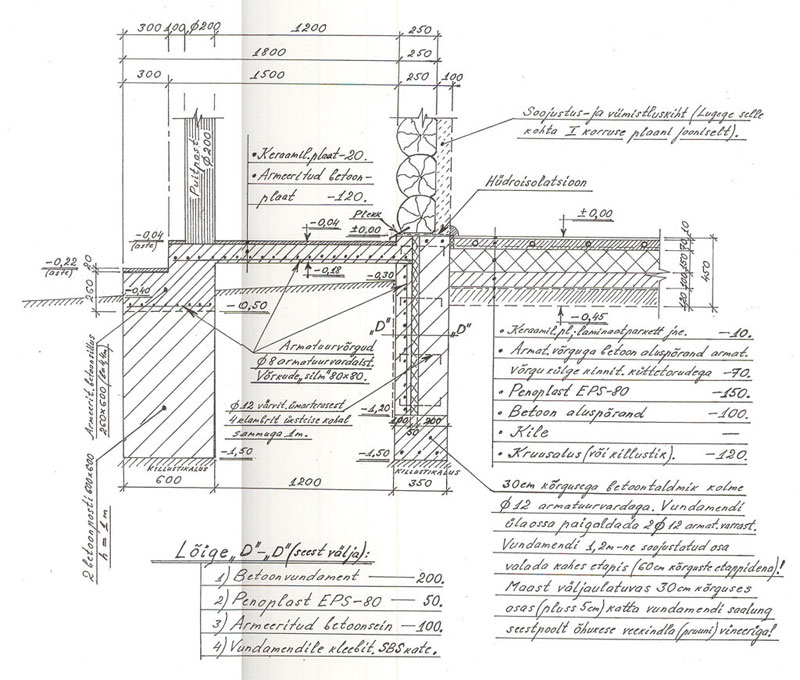 300 100 Φ200 1200 250
1800 250
300 1500 250 100
Soojustus-ja viimistluskiht (Lugege selle
kohta I korruse plaani jooniselt).
Puitpost
Φ200
• Keraamil. plaat-20.
• Armeeritud betoon-
plaat -120.
Hüdroisolatsioon
Plekk
-0,04
(aste)
-0,04
±0,00
±0,00
-0,22
(aste)
20
260
-0,18
-0,30
-0,40
-0,50
10
70
150
100
120
450
-0,45
"D" "D"
Armatuurvõrgud
Φ8 armatuurvardaist.
Võrkude „silm" 80x80.
Φ12 värvit. ümarterasest
4 klambrit üksteise kohal
sammuga 1m.
Armeerit. betoonsillus
260x600
2 betoonposti 600x600
h = 1 m
-1,20
100 200
50
-1,50
-1,50
KILLUSTIKALUS
KILLUSTIKALUS
600 1200 350
• Keraamil. pl.-laminaatparkett jne. -10.
• Armat. võrguga betoon aluspõrand armat.
võrgu külge kinnit. küttetorudega -70.
• Penoplast EPS-80 -150.
• Betoon aluspõrand -100.
• Kile —
• Kruusalus (või killustik). -120.
30cm kõrgusega betoontaldmik kolme
Φ12 armatuurvardaga. Vundamendi
ülaossa paigaldada 2Φ12 armat. varrast.
Vundamendi 1,2m-ne soojustatud osa
valada kahes etapis (60cm kõrguste etappidena)!
Maast väljaulatuvas 30cm kõrguses
osas (pluss 5cm) katta vundamendi saalung
seestpoolt õhukese veekindla (pruuni) vineeriga!
Lõige „D"-„D" (seest välja):
1) Betoonvundament — 200.
2) Penoplast EPS-80 — 50.
3) Armeeritud betoonsein — 100.
4) Vundamendile kleebit. SBS kate.